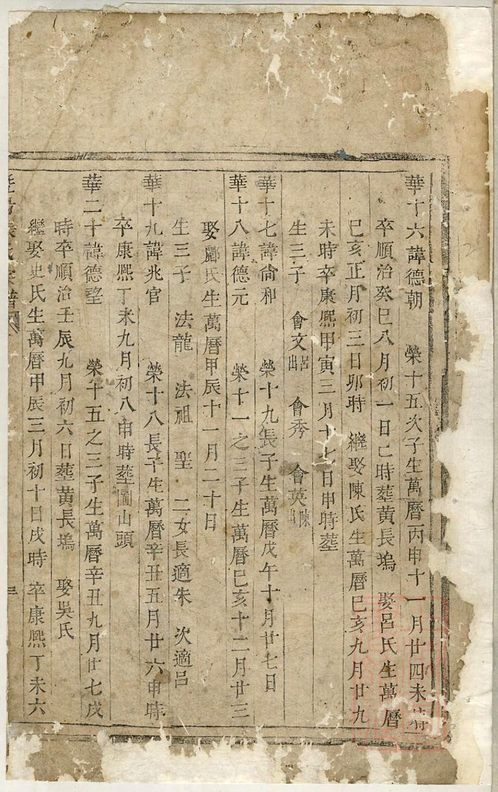 華十六諱德朝 榮十五次子生萬曆丙申十一月廿四未時
卒順治癸巳八月初一日巳時葬黃長塢 娶呂氏生萬曆
己亥正月初三日卯時 繼娶陳氏生萬曆己亥九月廿九
未時卒康熙甲寅三月十七日申時葬
生三子 會文出 會秀 會英出
華十七諱尙和 榮十九長子生萬曆戊午十月廿七日
華十八諱德元 榮十一之三子生萬曆己亥十二月廿三
娶鄺氏生萬曆甲辰十一月二十日
生三子 法龍 法祖 聖 二女長適朱 次適呂
華十九諱兆官 榮十八長子生萬曆辛丑五月廿六申時
卒康熙丁未九月初八申時葬圖山頭
華二十諱德望 榮十五之三子生萬曆辛丑九月廿七戌
時卒順治壬辰九月初六日葬黃長塢 娶吳氏
繼娶史氏生萬曆甲辰三月初十日戌時 卒康熙丁未六
三